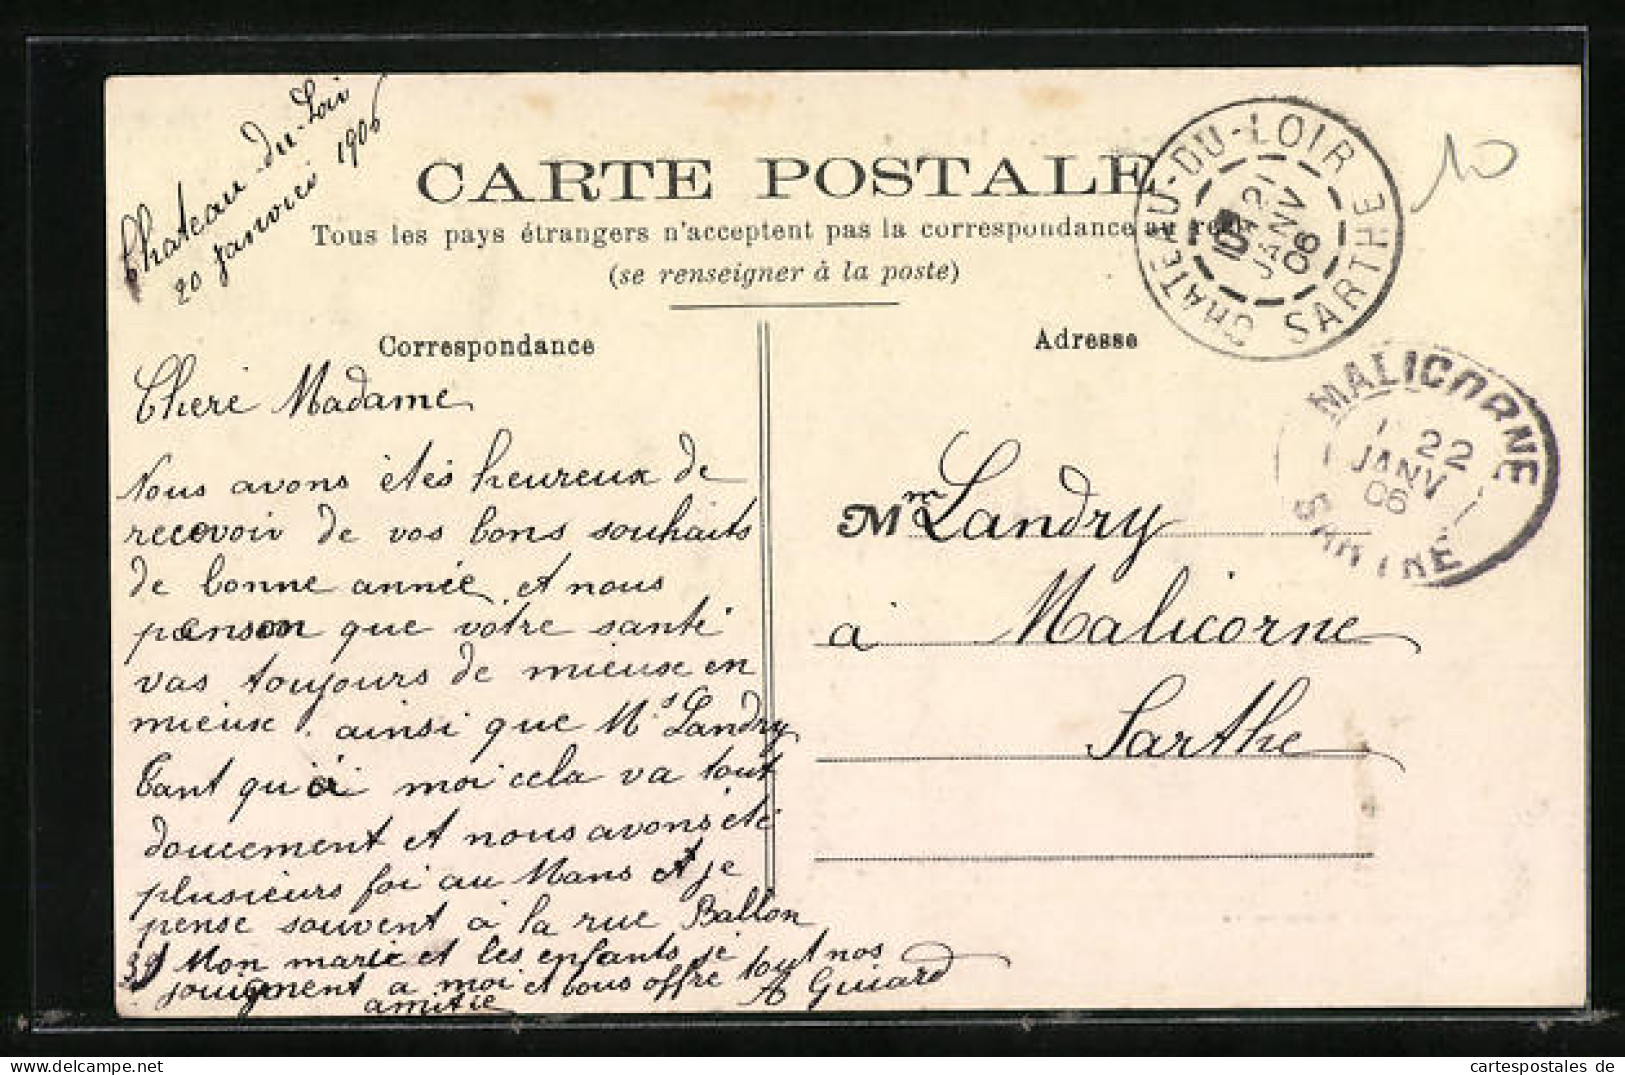 Chateau-du-Loir
20 janvier 1906
10
CARTE POSTALE
Tous les pays étrangers n'acceptent pas la correspondance au recto
(se renseigner à la poste)
CHATEAU-DU-LOIR
21
JANV
06
SARTHE
Correspondance
Adresse
MALICORNE
22
JANV
06
SARTHE
Cheré Madame
Nous avons étés heureux de
recevoir de vos bons souhaits
de bonne année et nous
penson que votre santé
vas toujours de mieux en
mieux. ainsi que Mr Landry
Tant qu'à moi cela va tout
doucement et nous avons été
plusieurs foi au Mans et je
pense souvent à la rue Ballon
39 Mon marie et les enfants je
jougment a moi et vous offre tout nos
amitie A Guiard
Mme Landry
à Malicorne
Sarthe
cartespostales de